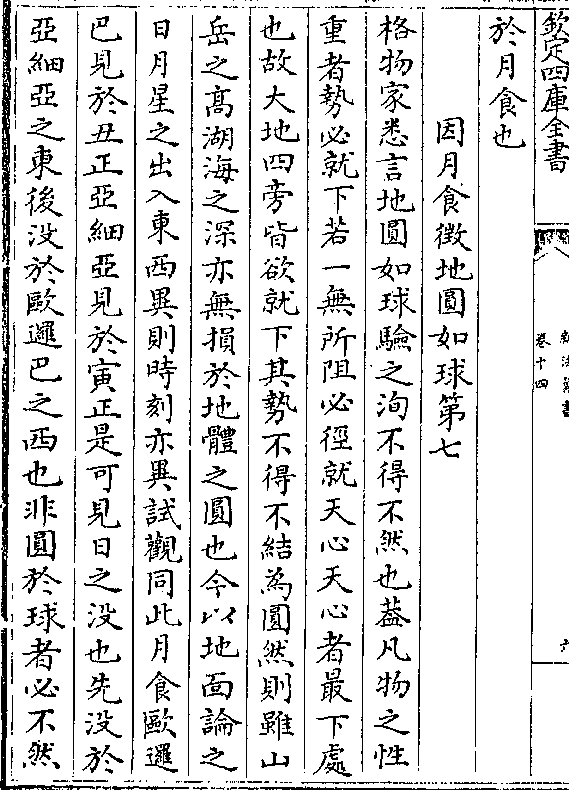 欽定四庫全書
新法算書
卷十四
六
於月食也
因月食徵地圓如球第七
格物家悉言地圓如球驗之洵不得不然也葢凡物之性
重者勢必就下若一無所阻必徑就天心天心者最下處
也故大地四旁皆欲就下其勢不得不結為圓然則雖山
岳之髙湖海之深亦無損於地體之圓也今以地面論之
日月星之出入東西異則時刻亦異試觀同此月食歐邏
巴見於丑正亞細亞見於寅正是可見日之没也先没於
亞細亞之東後没於歐邏巴之西也非圓於球者必不然